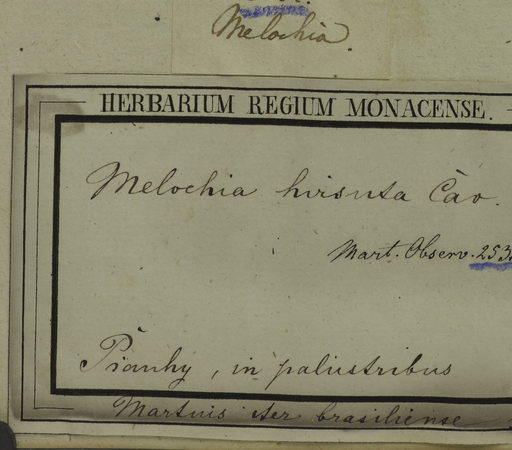 Melochia
HERBARIUM REGIUM MONACENSE.
Melochia hirsuta Cav.
Mart. Observ. 253
Piauhy, in palustribus
Martius iter brasiliense